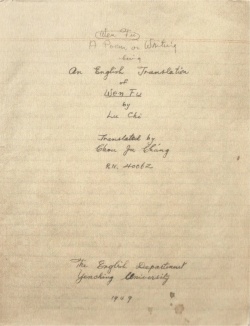 (Wen Fu)
A Poem on Writing
being
An English Translation
of
Wen Fu
by
Lu Chi
Translated by
Chou Ju Chang
R.N. 40062
The English Department
Yenching University
1949